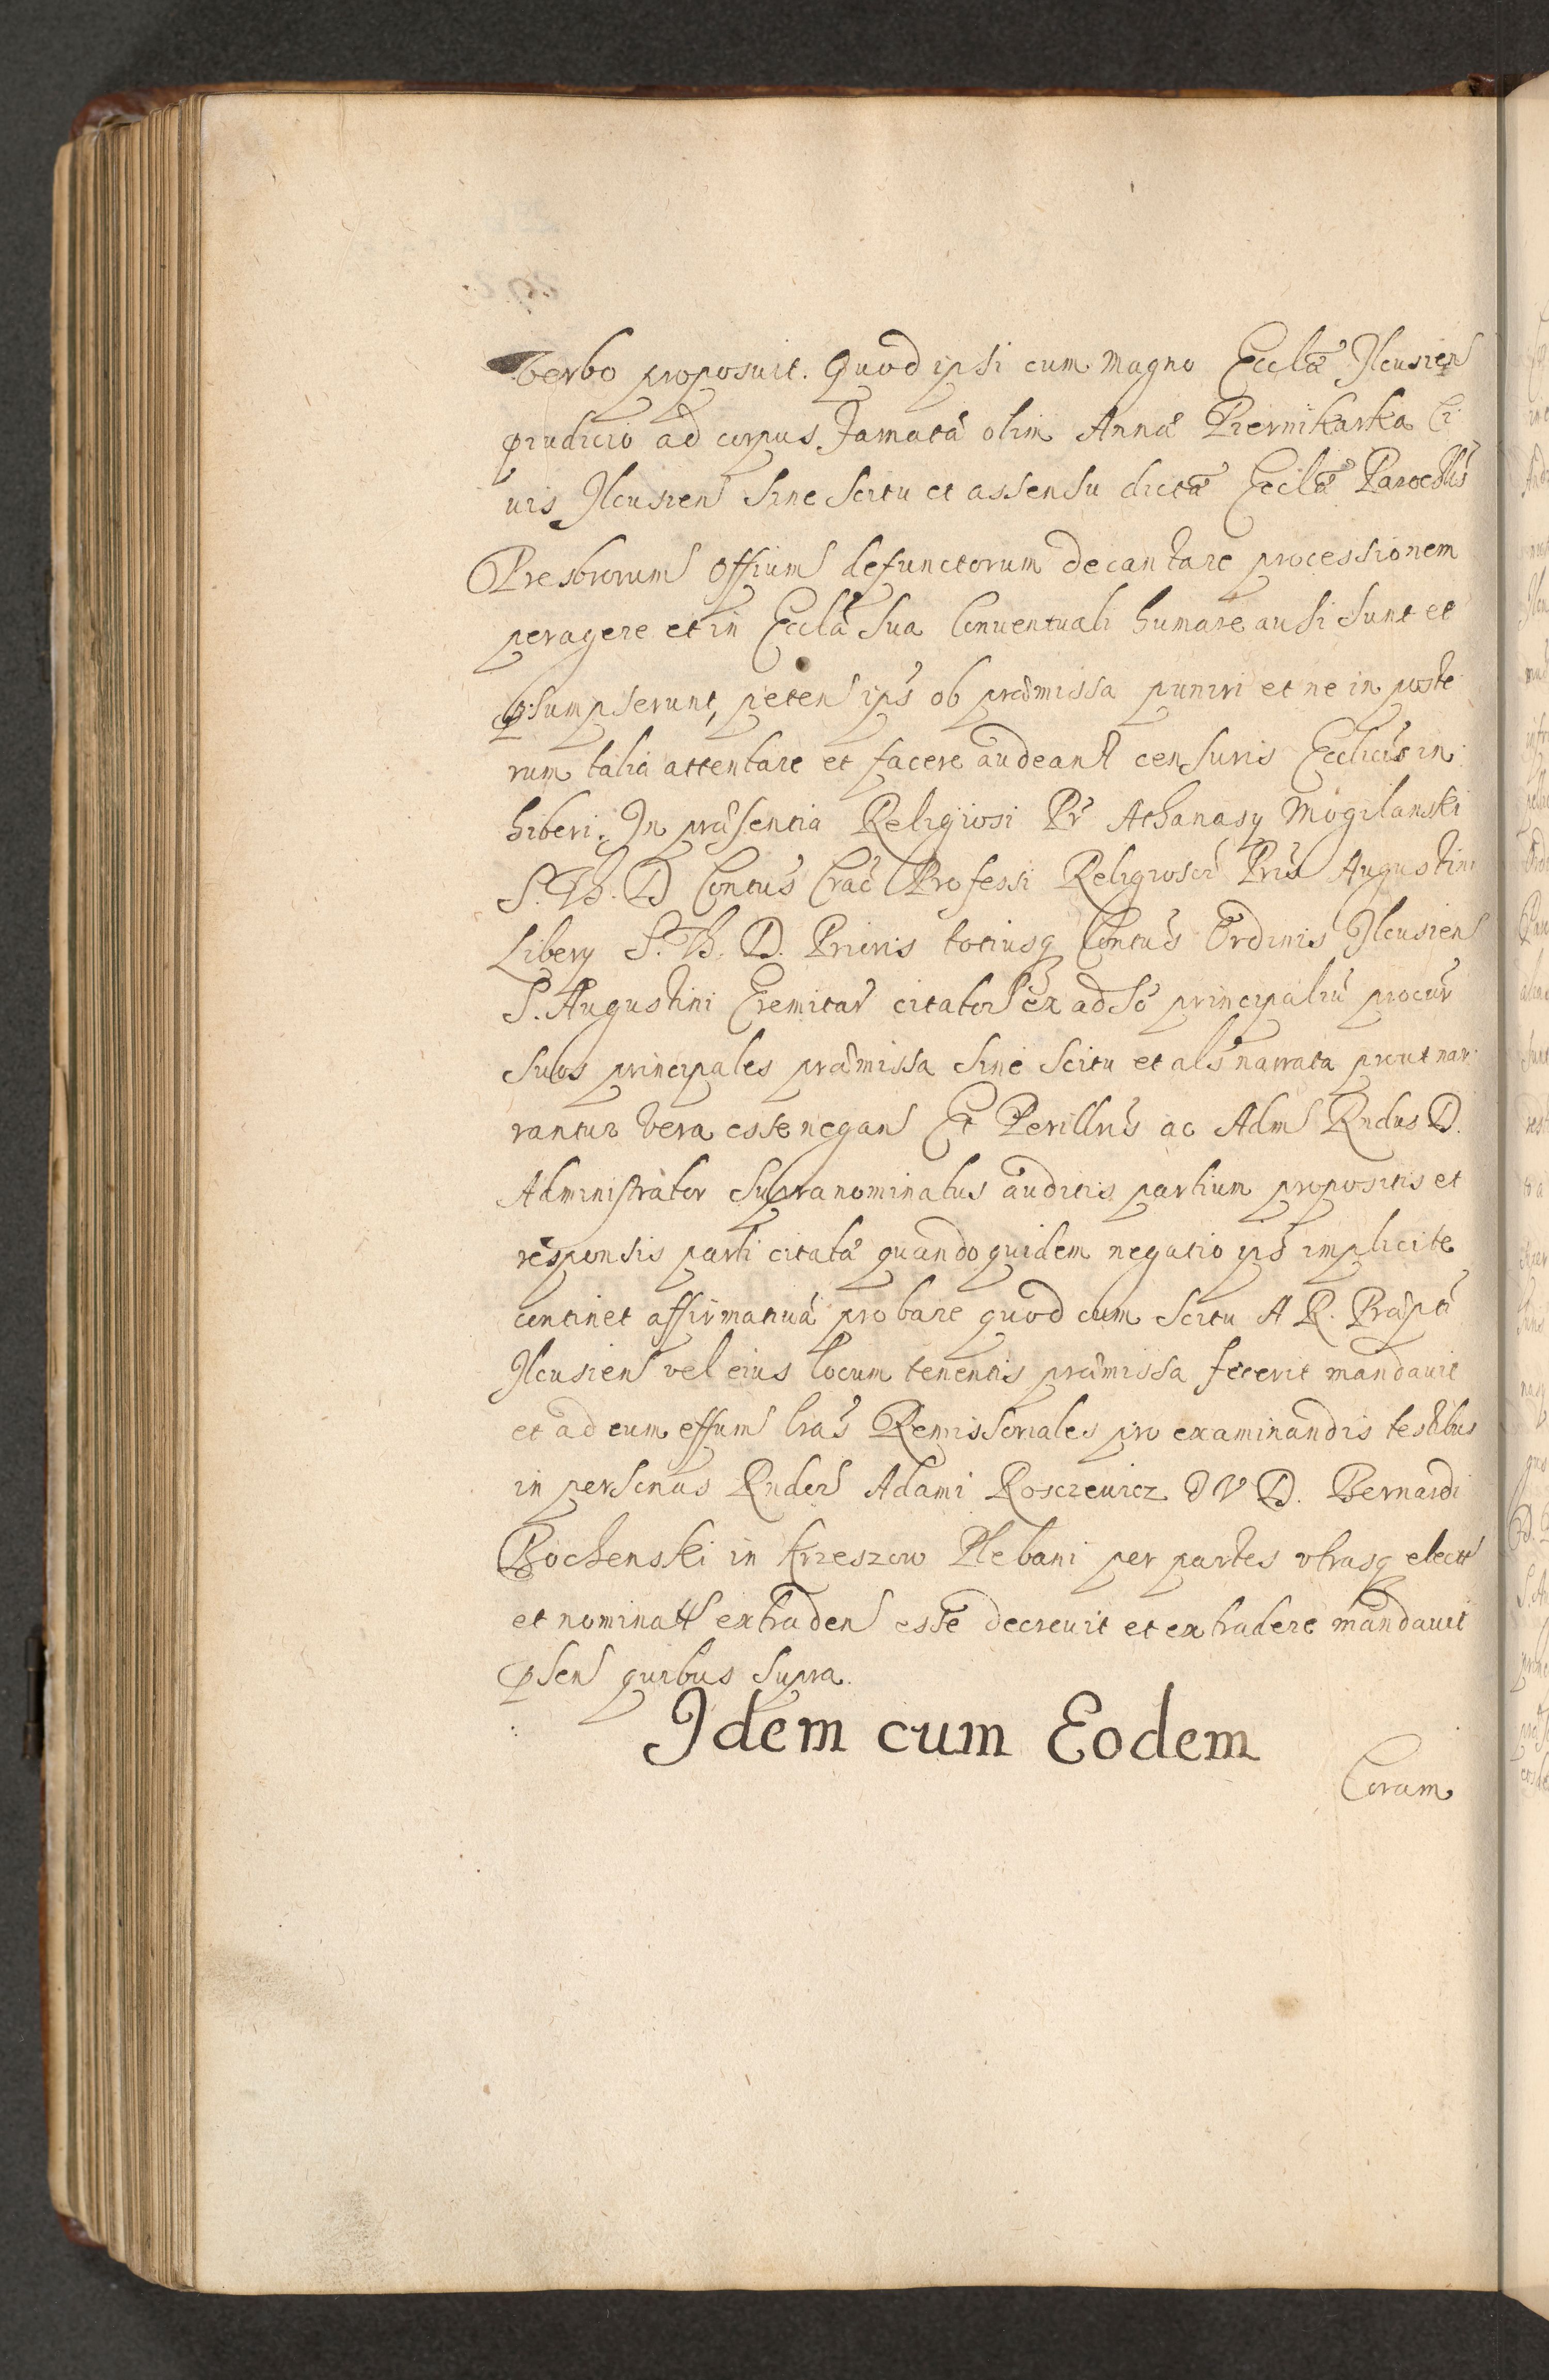 verbo proposuit. Quod ipsi cum magno Ecclæ Ilcusien
pruditio ad corpus Famatæ olim Annæ Piernikarka Ci
uis Ilcusien sine scitu et assensu dictæ Ecclæ Parochlis
Presbrorum offium defunctorum decantare processionem
peragere et in Eccla sua Conuentuali humare ausi sunt et
psumpserunt, peten ips ob præmissa puniri et ne in poste
rum talia attentare et facere audeant censuris Ecclicis in
hiberi. In præsentia Religiosi Pr Athanasy Mogilanski
S. Th. D Contus Crac Professi Religiosor Pris Augustini
Libery S. Th. D. Prioris totiusq Contus Ordinis Ilcusien
S. Augustini Eremitar citator ex adso principaliu procur
suos principales præmissa sine scitu et als narrata prout nar
rantur vera esse negan Et Perillris ac Adm Rndus D.
Administrator supranominatus auditis partium propositis et
responsis parti citatæ quandoquidem negatio ips implicite
continet affirmatiua probare quod cum scitu A R. Præpti
Ilcusien vel eius locum tenentis præmissa fecerit mandauit
et ad eum effum lras Remissoriales pro examinandis testibus
in personas Rndor Adami Roscievicz I V D. Bernardi
Bochenski in Krzeszow Plebani per partes vtrasq elect
et nominatt extraden esse decreuit et extradere mandauit
psen quibus supra.
Idem cum Eodem
Coram